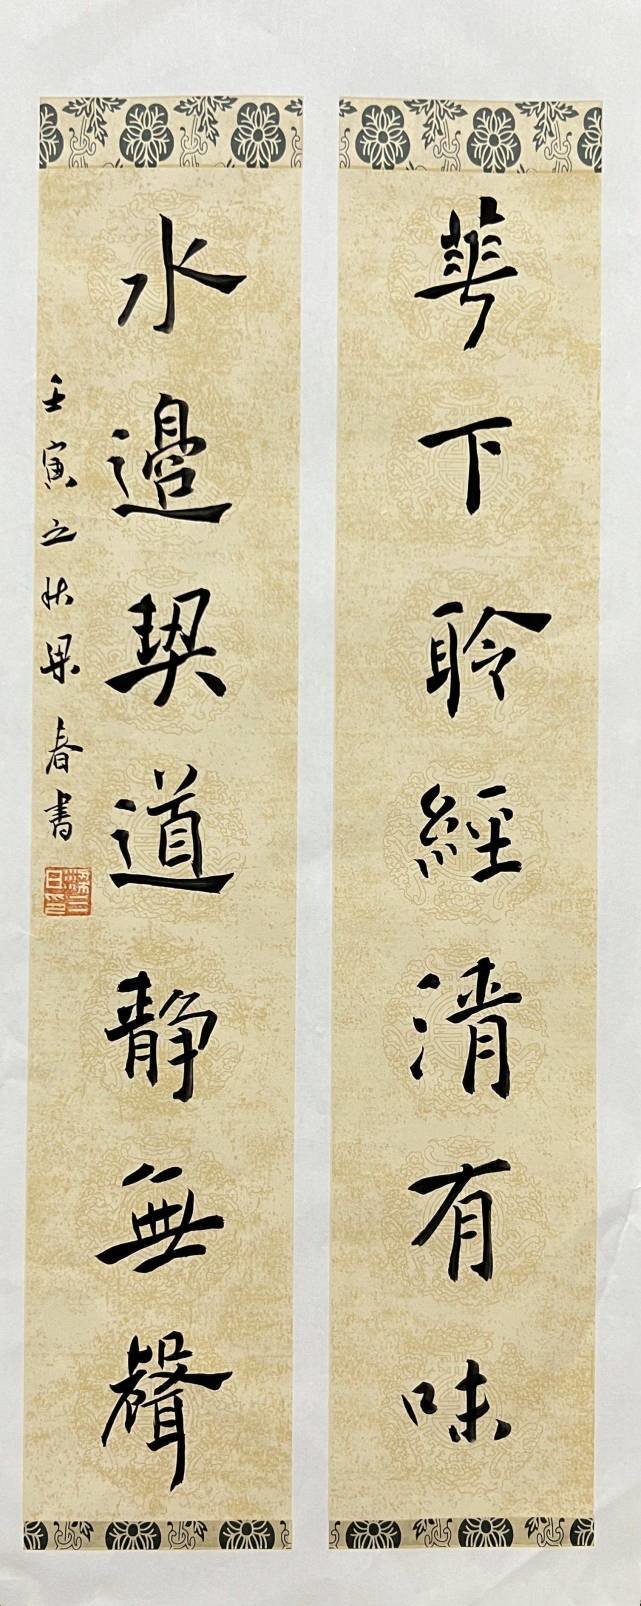 華下聆經清有味
水邊契道靜無聲
壬寅之秋梁春書